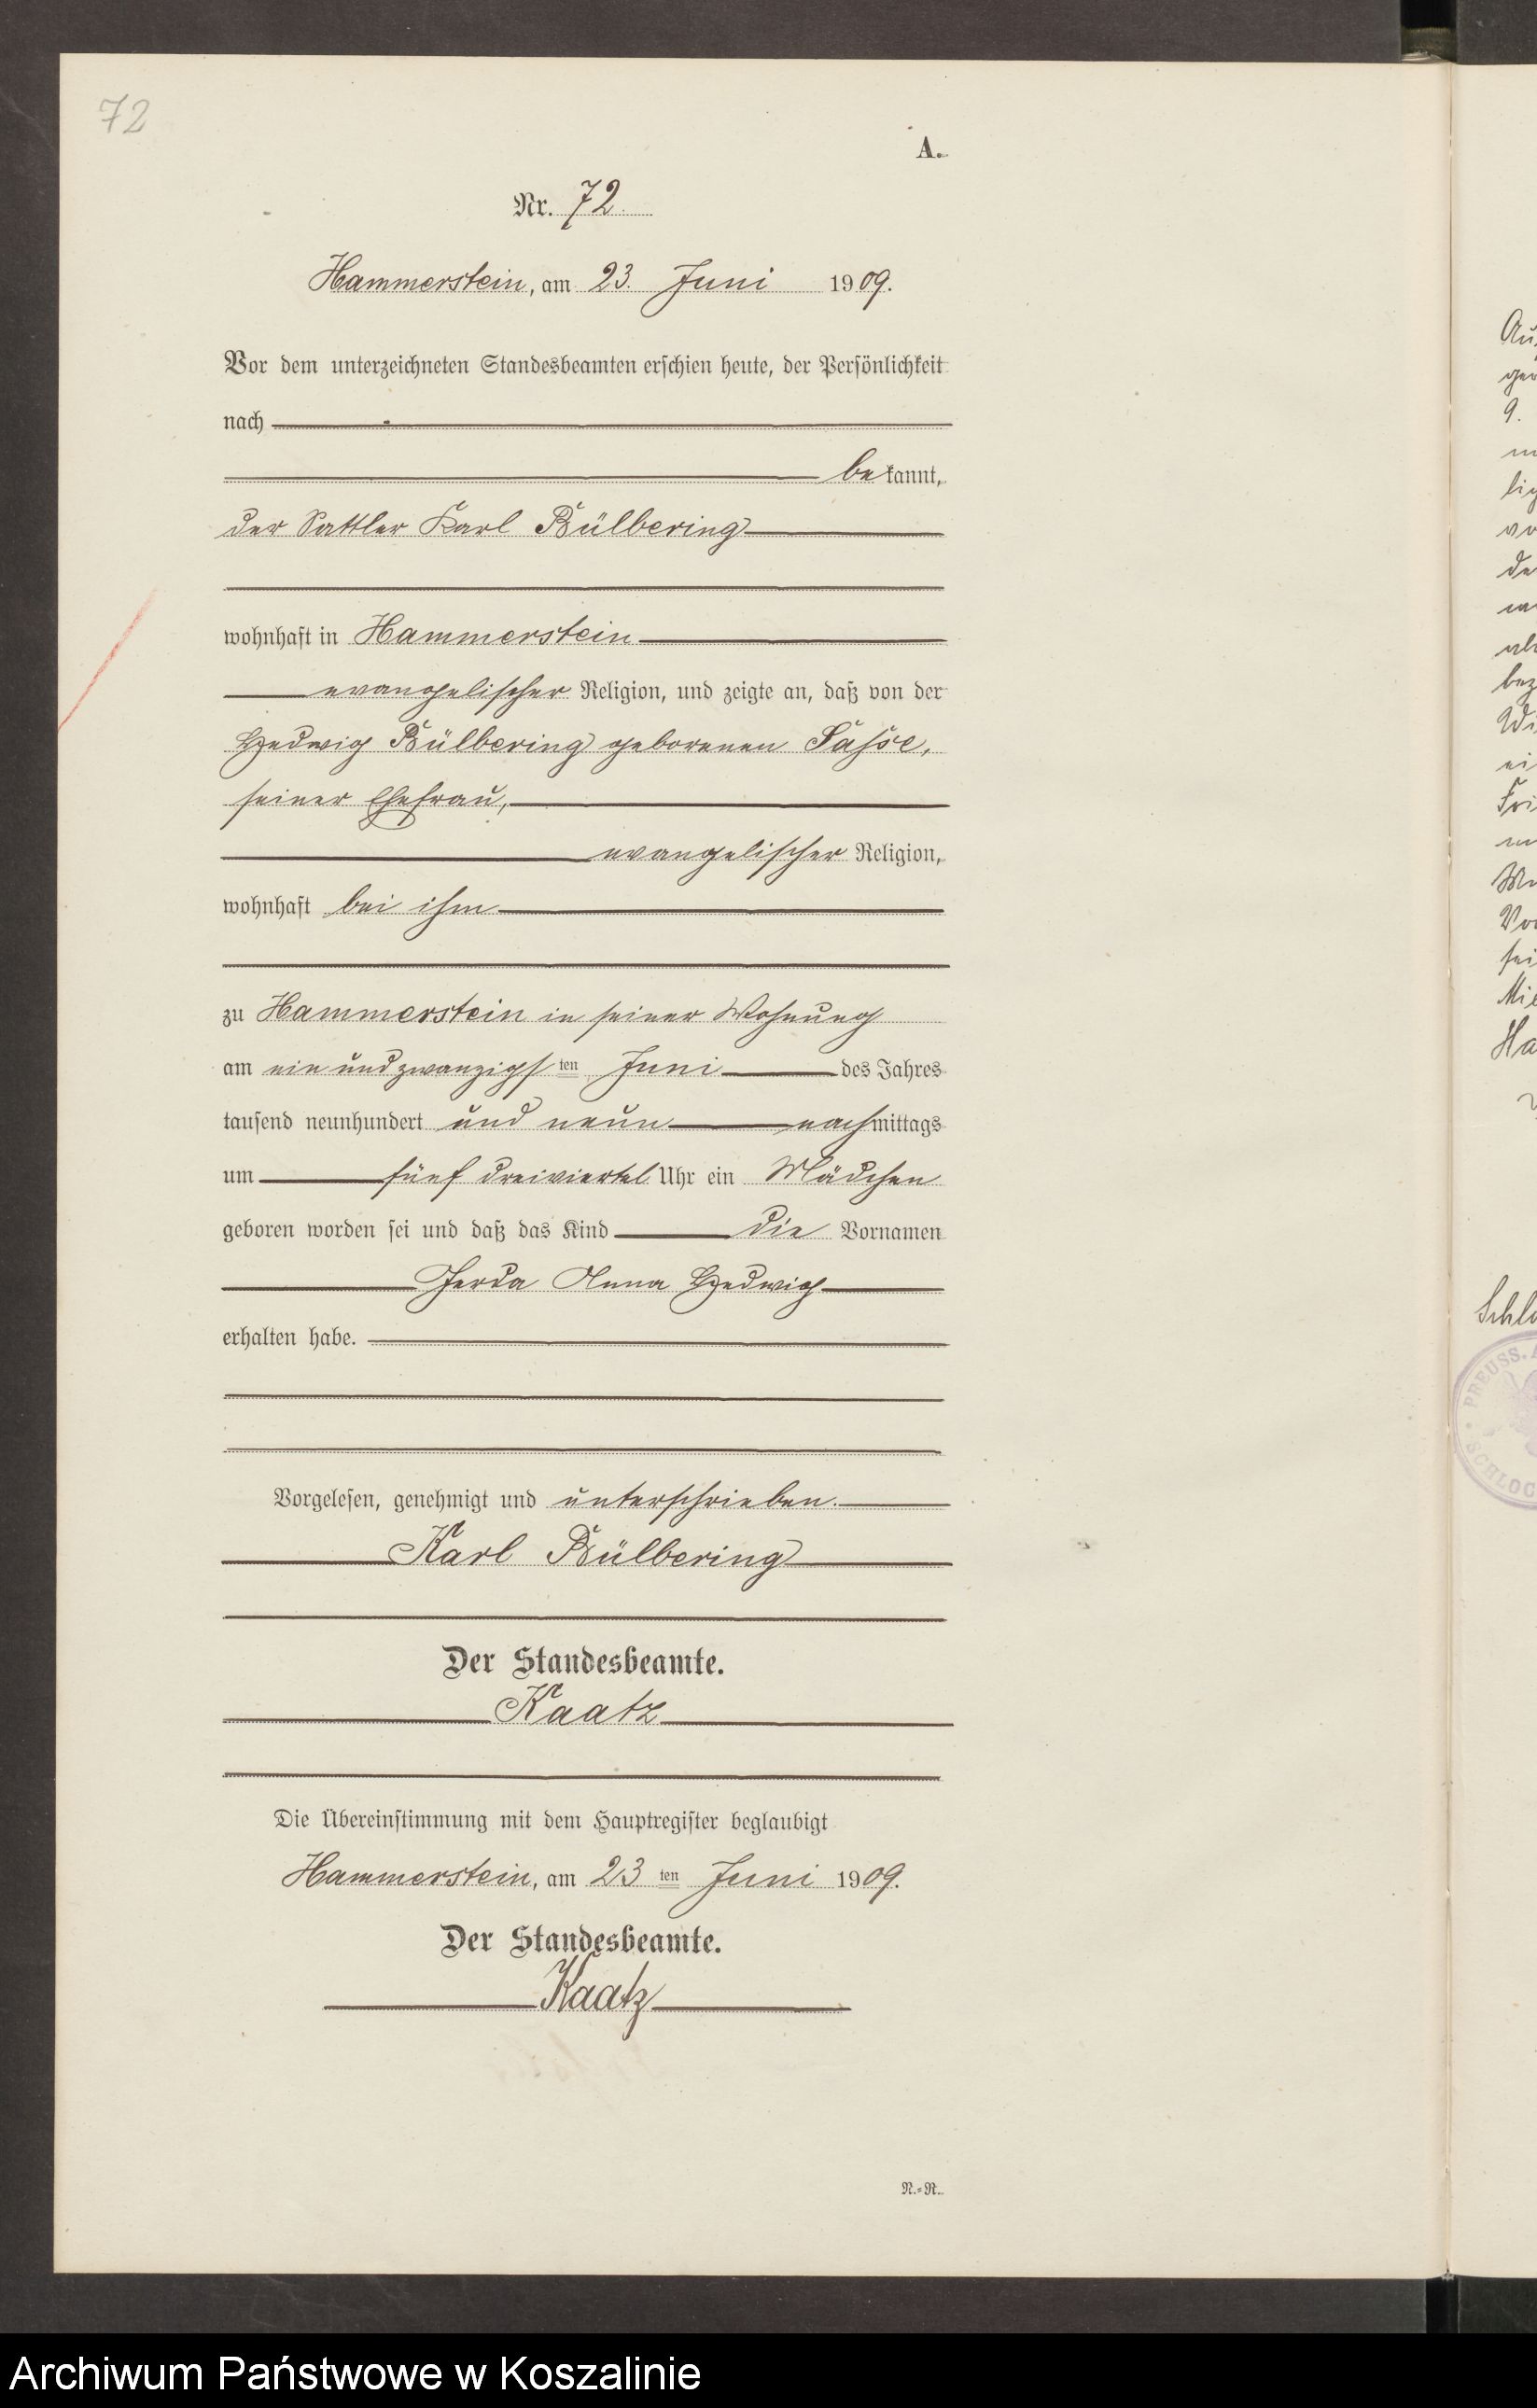 72
A.
Nr. 72
Hammerstein, am 23. Juni 1909.
Vor dem unterzeichneten Standesbeamten erschien heute, der Persönlichkeit
nach
bekannt,
der Sattler Karl Bülbering
wohnhaft in Hammerstein
evangelischer Religion, und zeigte an, daß von der
Hedwig Bülbering geborenen Sasse,
seiner Ehefrau,
evangelischer Religion,
wohnhaft bei ihm
zu Hammerstein in seiner Wohnung
am ein und zwanzigsten Juni des Jahres
tausend neunhundert und neun nachmittags
um fünf dreiviertel Uhr ein Mädchen
geboren worden sei und daß das Kind die Vornamen
Gerda Anna Hedwig
erhalten habe.
Vorgelesen, genehmigt und unterschrieben.
Karl Bülbering
Der Standesbeamte.
Kaatz
Die Übereinstimmung mit dem Hauptregister beglaubigt
Hammerstein, am 23ten Juni 1909.
Der Standesbeamte.
Kaatz
N.-R.
Archiwum Państwowe w Koszalinie